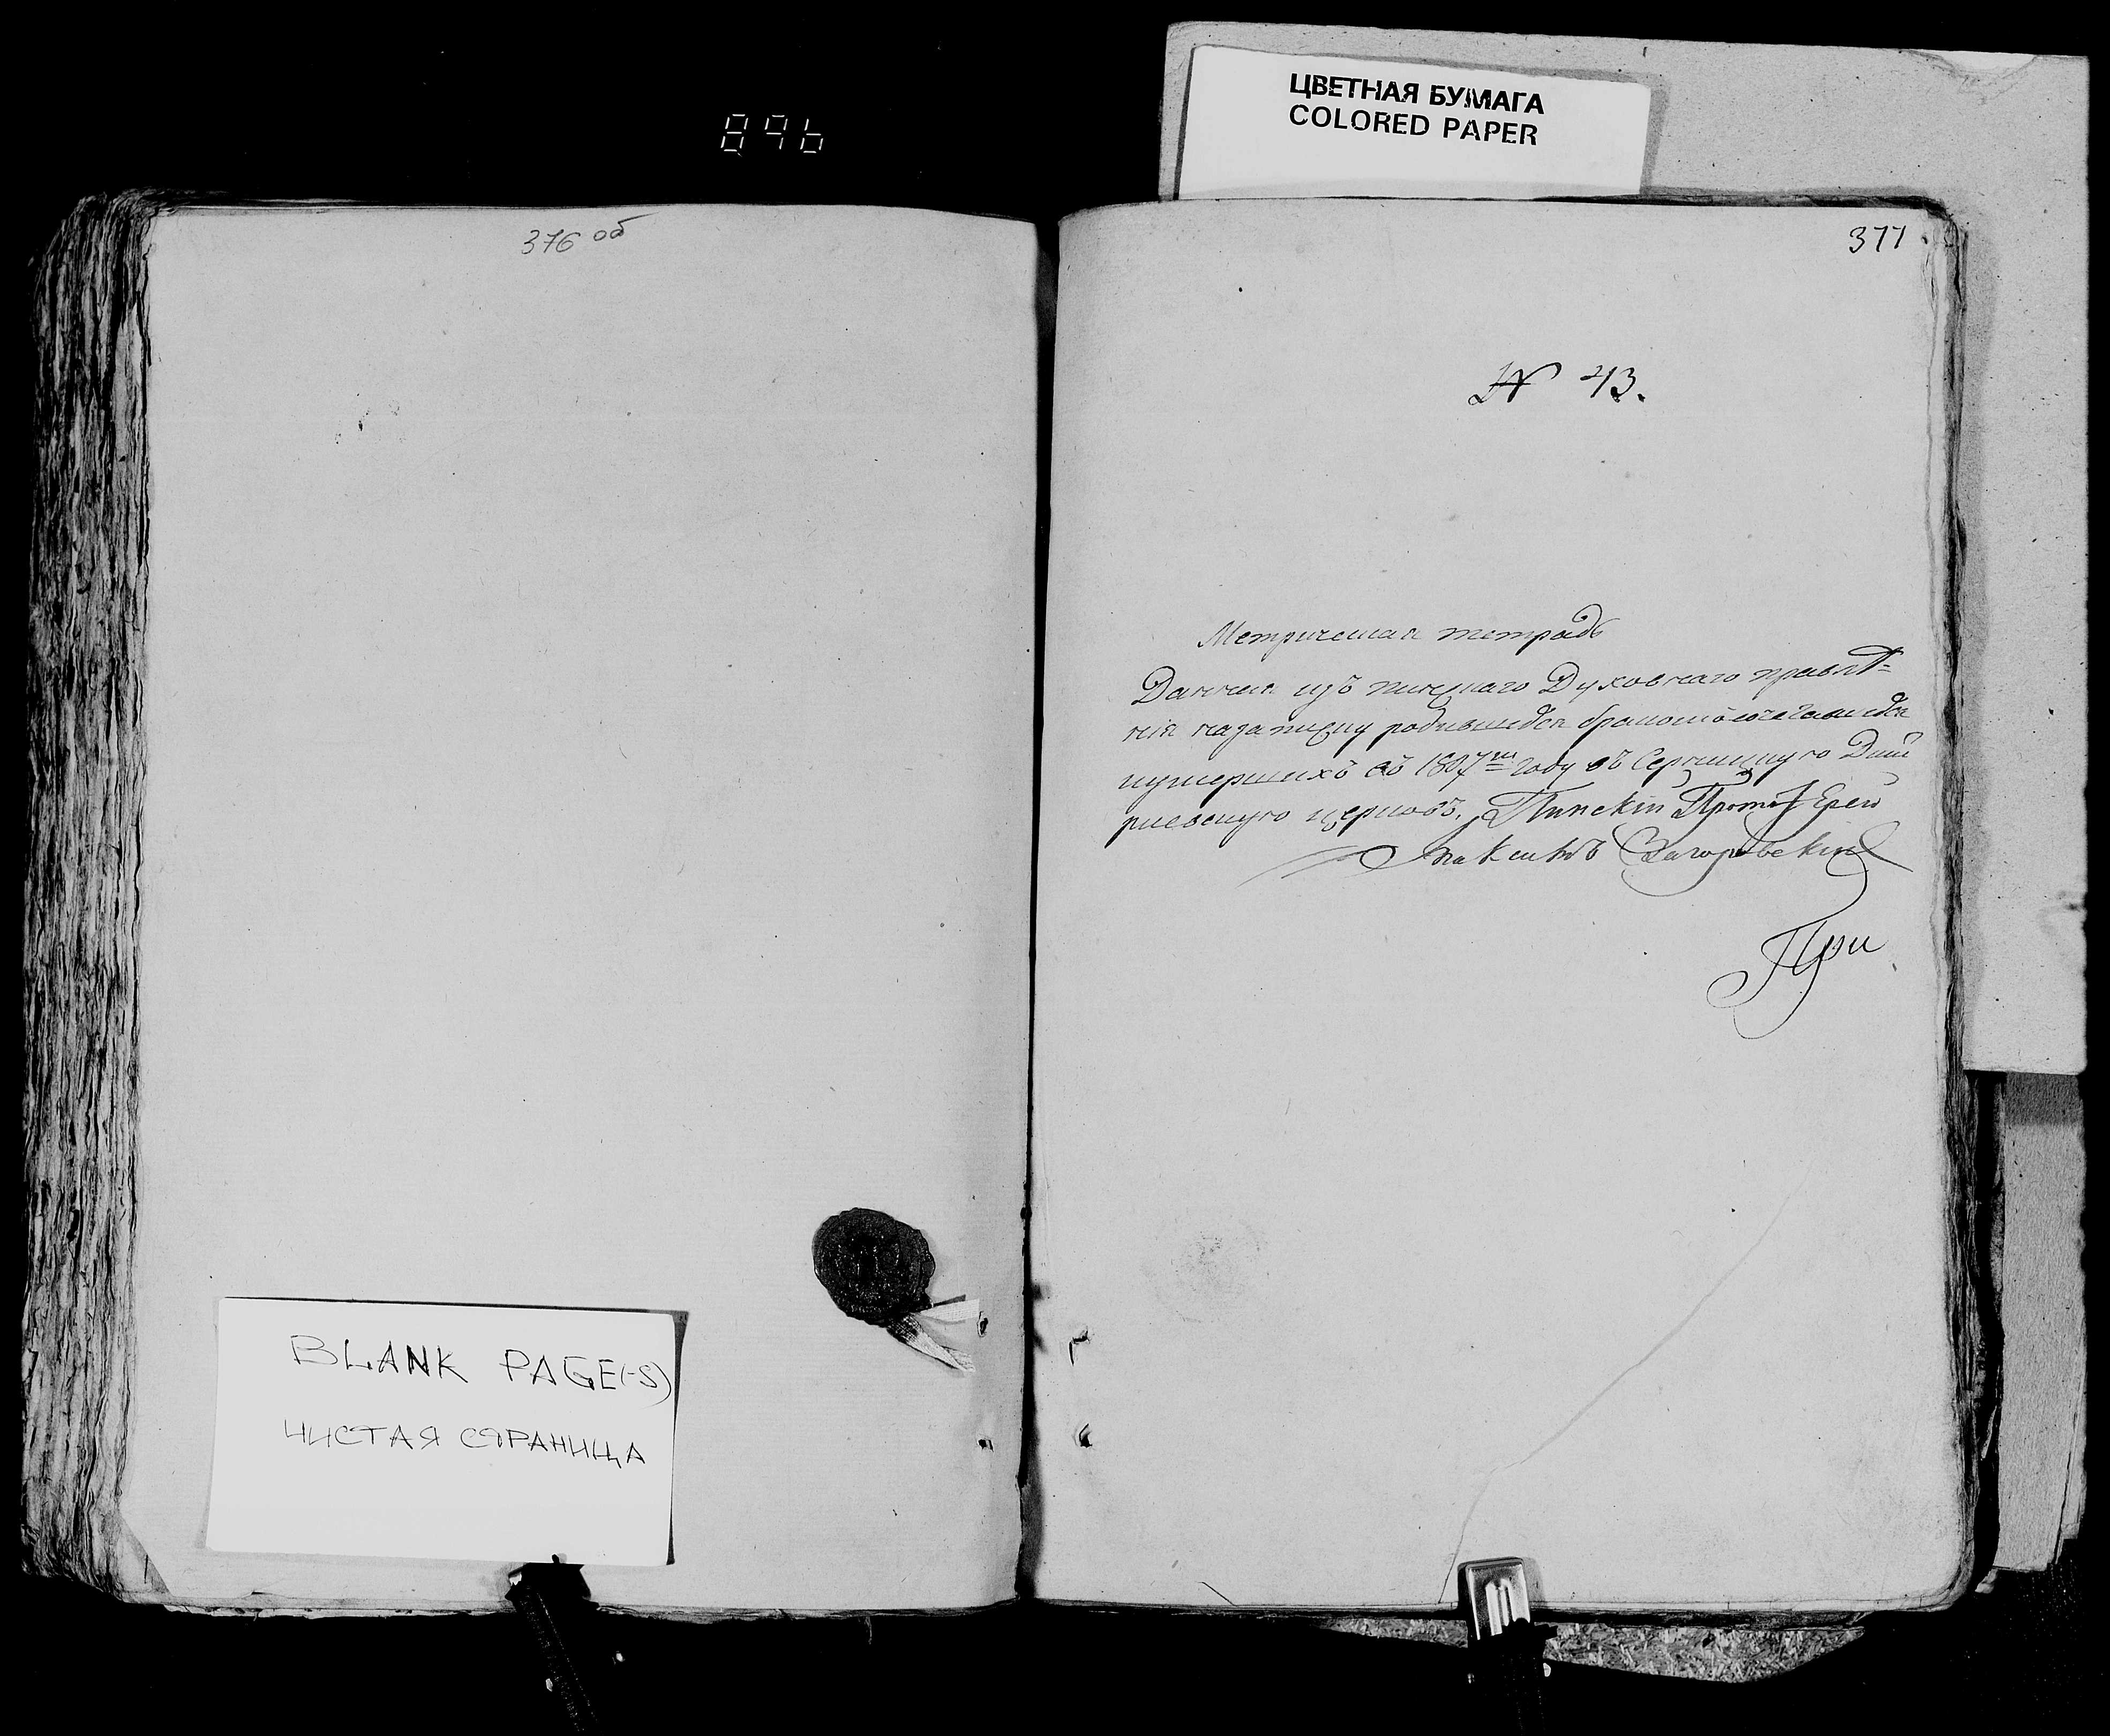 896
ЦВЕТНАЯ БУМАГА
COLORED PAPER
376 об
377
№ 43.
Метрическая тетрадь
Данная изъ пинскаго Духовнаго правлѣ=
нія назаписку родившихся бракомъ сочетавшихся
иумершихъ въ 1807м году въ Серницкую Дми
риевскую церковь. Пинскій ПротоІерей
Максимъ Загоровскій
При
BLANK PAGE(-S)
ЧИСТАЯ СТРАНИЦА